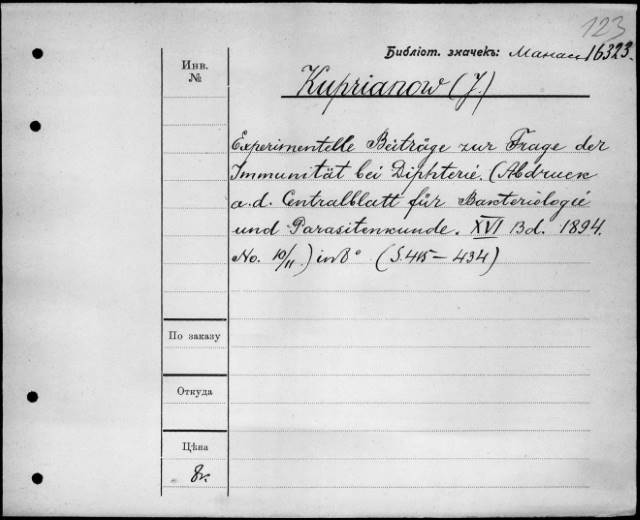 123
Библіот. значекъ: Манас 16323.
Инв.
№
Kuprianow (J.)
Experimentelle Beiträge zur Frage der
Immunität bei Diphterie. (Abdruck
a. d. Centralblatt für Bakteriologie
und Parasitenkunde. XVI Bd. 1894.
No. 10/11.) in 8° (S. 415 — 434)
По заказу
Откуда
Цѣна